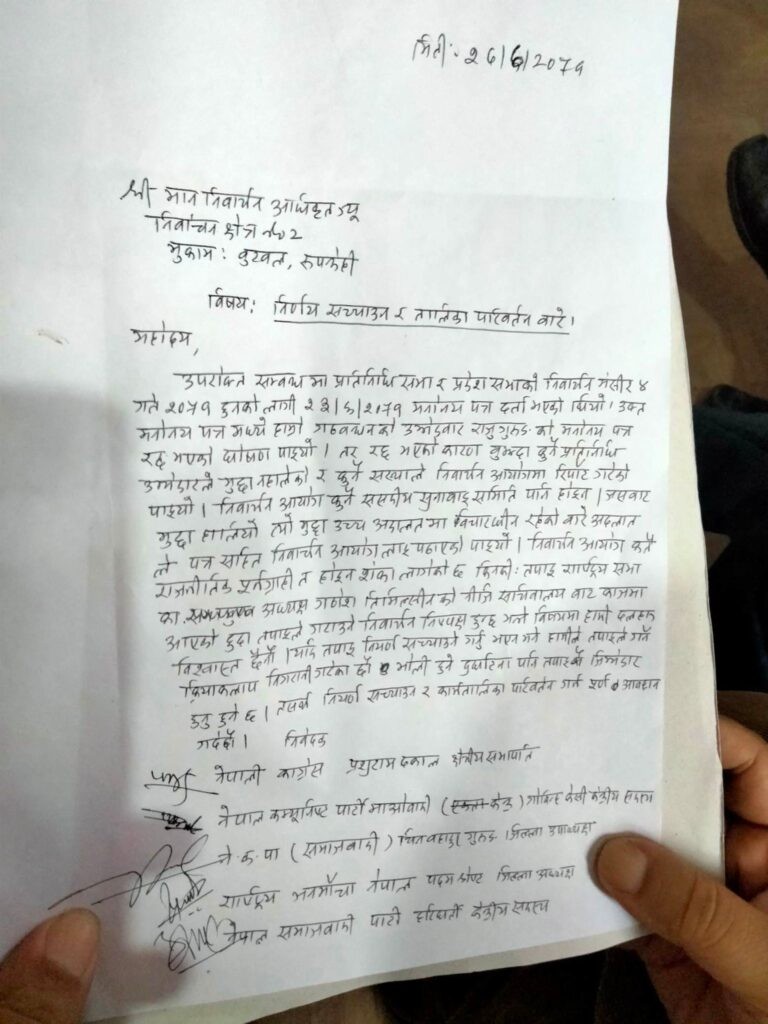 मिती: २6/6/2079
श्री मान निर्वाचन अधिकृत ज्यू
निर्वाचन क्षेत्र नं० 2
मुकाम: बुटवल, रुपन्देही
विषय: निर्णय सच्याउन र तालिका परिवर्तन बारे।
महोदय,
उपरोक्त सम्बन्धमा प्रतिनिधि सभा र प्रदेश सभाको निर्वाचन मंसीर ४
गते २०७९ हुनको लागी मनोनय पत्र दर्ता भएको थियो। उक्त
मनोनय पत्र मध्ये हाम्रो गठवन्धनको उम्मेद्वार राजु गुरुङ को मनोनय पत्र
रद्द भएको घोषणा पाइयो। तर रद्द भएको कारण बुझ्दा कुनै प्रतिनिधि
उम्मेद्वारले मुद्दा नहालेको र कुनै संख्याले निर्वाचन आयोगमा रिपोर्ट गरेको
पाइयो। निर्वाचन आयोग कुनै संसदीय सुनावाइ समिति पनि होइन। जसबाट
मुद्दा हालियो त्यो मुद्दा उच्च अदालतमा विचाराधीन रहेको बारे अदालत
ले पत्र सहित निर्वाचन आयोगलाइ पठाएको पाइयो। निर्वाचन आयोग कतै
राजनीतिक पूर्वाग्रही त होइन शंका लागेको छ किनकी: तपाइ राष्ट्रिय सभा
का अध्यक्ष गणेश तिमिल्सीनको निजि सचिवालय बाट काजमा
आएको हुदा तपाइले गराउने निर्वाचन निष्पक्ष हुन्छ भन्ने विषयमा हामी दलहरु
विश्वास्त छैनौं। यदि तपाइ निर्णय सच्याउने गर्नु भएन भने हामीले तपाइले गर्ने
क्रियाकलाप निगरानी गरेका छौं भोली हुने दुर्घटना पनि तपाइकै जिम्मेदार
हुनु हुने छ। तसर्थ निर्णय सच्याउन र कार्यतालिका परिवर्तन गर्न पूर्ण आवहान
गर्दछौं। निवेदक
नेपाली कांग्रेस प्रशुराम ढकाल क्षेत्रीय सभापति
नेपाल कम्यूनिष्ट पार्टी माओवादी (केन्द्र) गोविन्द केसी केन्द्रीय सदस्य
ने.क.पा (समाजवादी) चित्रबहादुर गुरुङ जिल्ला उपाध्यक्ष
राष्ट्रिय जनमोर्चा नेपाल जिल्ला अध्यक्ष
नेपाल समाजवादी पार्टी केन्द्रीय सदस्य